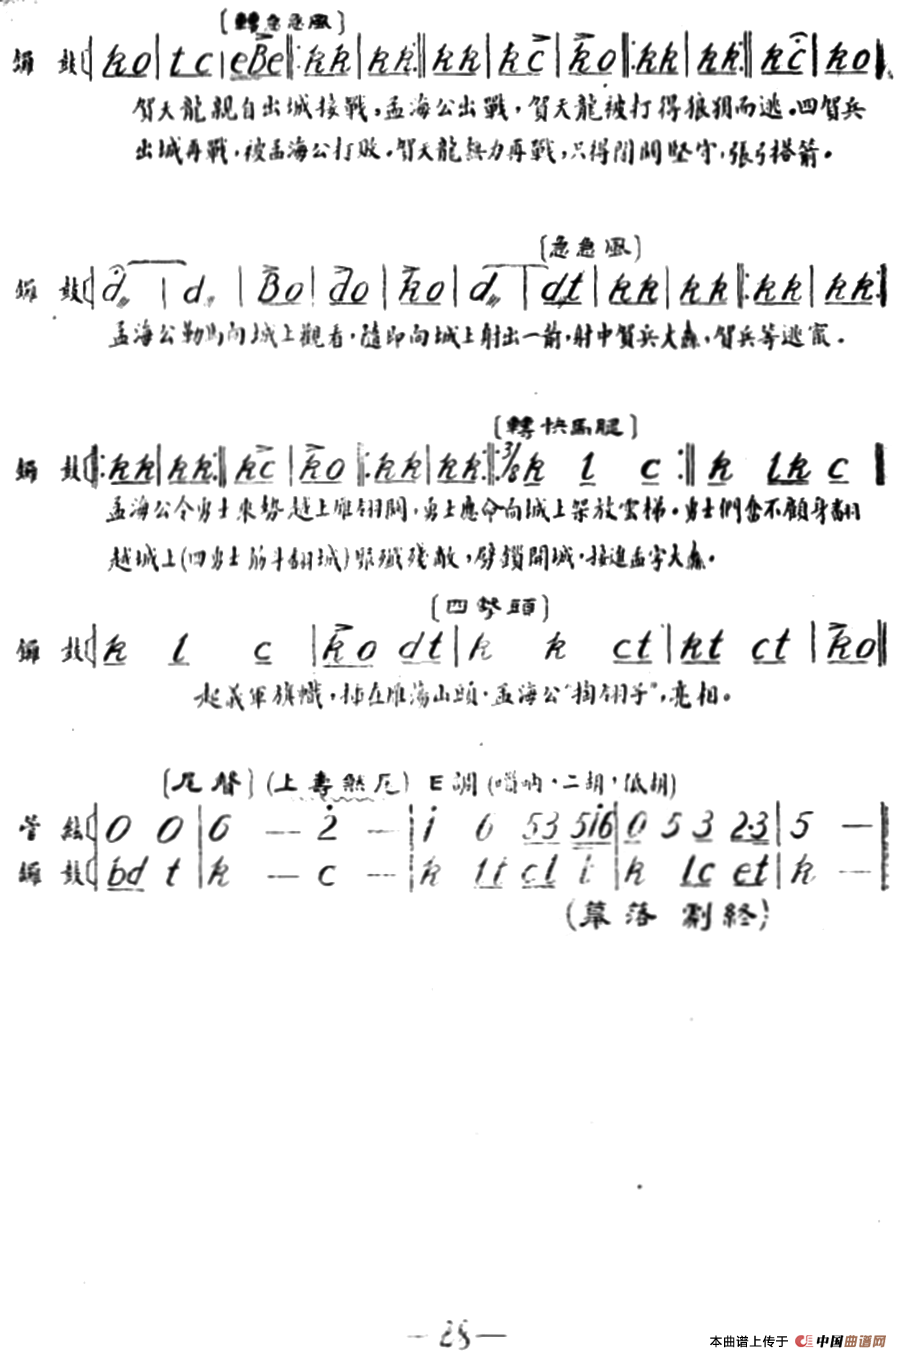 [轉急急風]
鑼 鼓 k o | t c | e B e ‖: k k | k k :‖ k k | k c | k o ‖: k k | k k :‖ k c | k o ‖
賀天龍親自出城接戰,孟海公出戰,賀天龍被打得狼狽而逃.四賀兵
出城再戰,被孟海公打敗.賀天龍無力再戰,只得閉關堅守,張弓搭箭.
[急急風]
鑼 鼓 d | d | B o | d o | k o | d | d t | k k | k k ‖: k k | k k :‖
孟海公勒馬向城上觀看,隨即向城上射出一箭,射中賀兵大纛,賀兵等逃竄.
[轉快馬腿]
鑼 鼓 ‖: k k | k k :‖ k c | k o ‖: k k | k k :‖: 3/8 k l c :‖ k l k c ‖
孟海公令勇士乘勢越上雁翎關,勇士應命向城上架放雲梯.勇士們奮不顧身翻
越城上(四勇士筋斗翻城)眾殲殘敵,劈鎖開城,接進孟字大纛.
[四擊頭]
鑼 鼓 k l c | k o d t | k k c t | k t c t | k o ‖
起義軍旗幟,插在雁蕩山頭.孟海公"掏翎子",亮相.
[尾聲] (上壽煞尾) E調 (嗩吶,二胡,低胡)
管 絃 0 0 | 6 — 2 — | i 6 53 5i6 | 0 5 3 2·3 | 5 — ‖
鑼 鼓 bd t | k — c — | k lt cl t | k lc et | k — ‖
(幕落 劇終)
— 28 —
本曲谱上传于 中国曲谱网